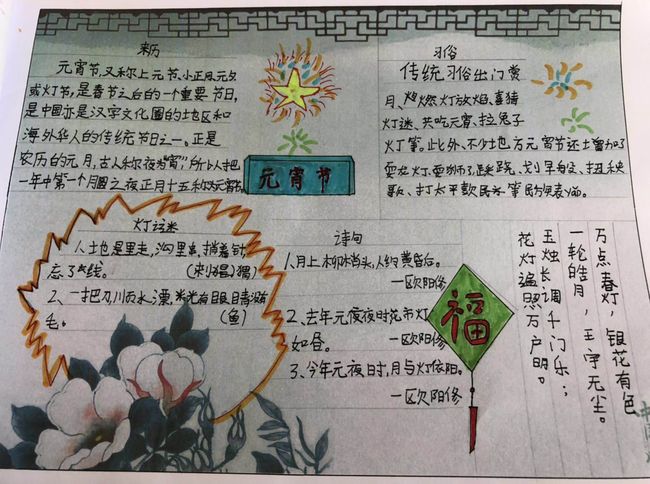 来历
元宵节,又称上元节、小正月、元夕
或灯节,是春节之后的一个重要节日,
是中国亦是汉字文化圈的地区和
海外华人的传统节日之一。正是
农历的元月,古人称夜为"宵",所以把
一年中第一个月圆之夜正月十五称为元宵节。
元宵节
习俗
传统习俗出门赏
月、燃灯放焰、喜猜
灯谜、共吃元宵、拉兔子
灯等。此外,不少地方元宵节还增加了
耍龙灯、耍狮子、踩高跷、划旱船、扭秧
歌、打太平鼓等民俗表演。
灯谜
土里走,沟里串,捎着针,
忘了线。(猬)
2、一把刀,顺水漂,有眼睛,没
毛。(鱼)
诗句
1、月上柳梢头,人约黄昏后。
—欧阳修
2、去年元夜时,花市灯
如昼。—欧阳修
3、今年元夜时,月与灯依旧。
—欧阳修
福
万点春灯,银花有色
一轮皓月,玉宇无尘。
玉烛长调千门乐;
花灯遍照万户明。